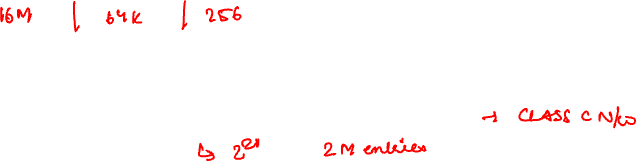 16M | 64K | 256
→ CLASS C N/w
↳ 2^21 2M entries